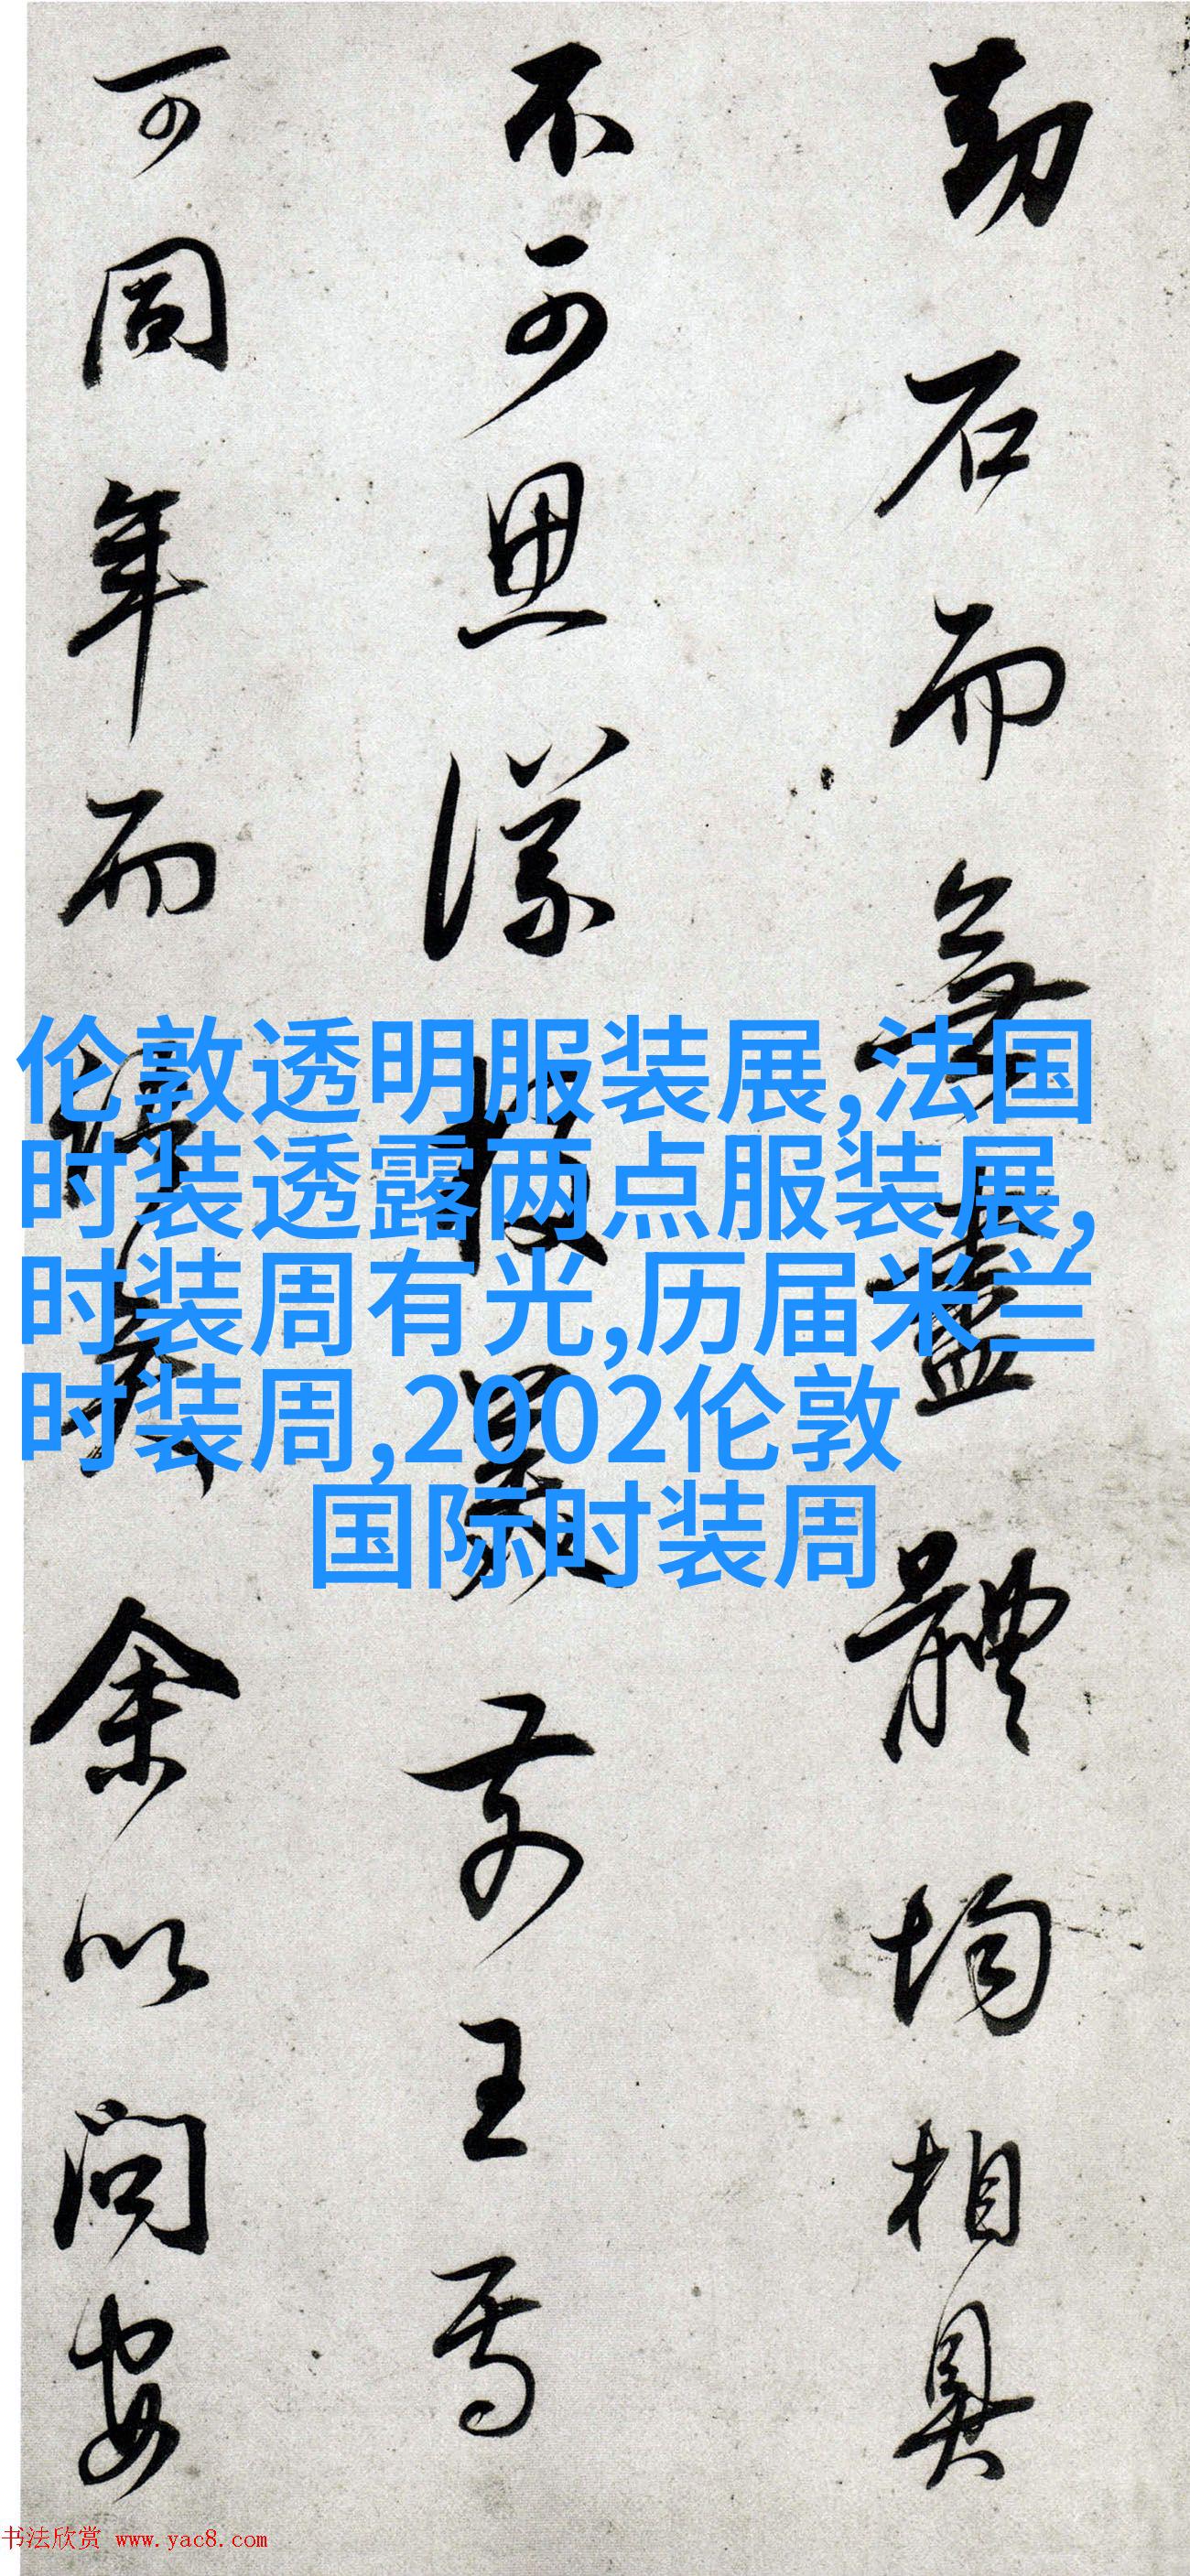 劫石而無盡體均相具
不可思議校累前王焉
可同年而
余以問安
伦敦透明服装展,法国
时装透露两点服装展,
时装周有光,历届米兰
时装周,2002伦敦
国际时装周
书法欣赏 www.yac8.com